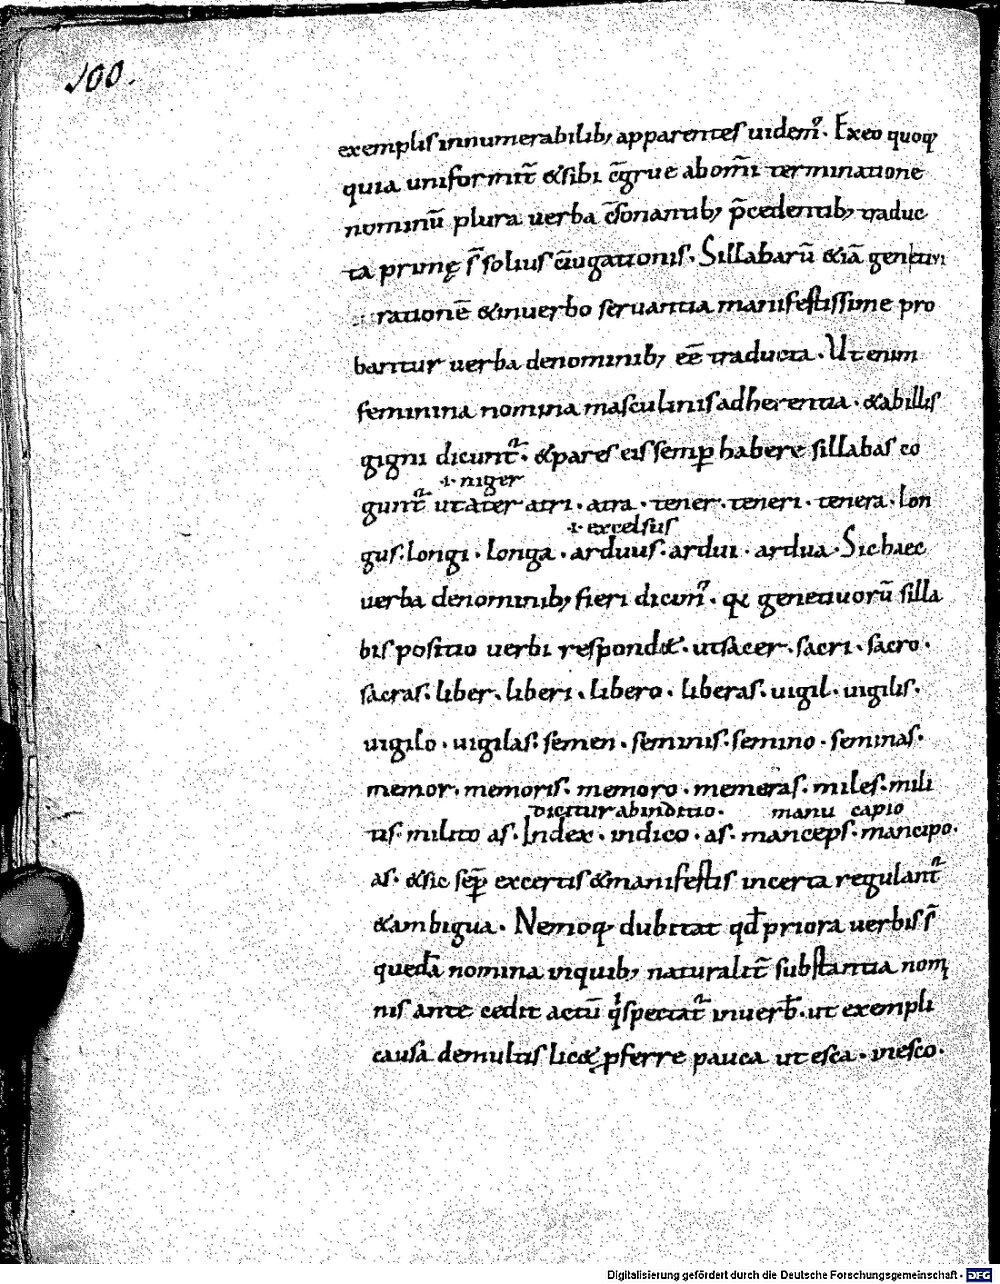 100.
exemplis innumerabilib; apparentes uident᷑. Ex eo quoq;
quia uniformit̄ & sibi c̄grue ab om̄i terminatione
nominū plura uerba c̄sonantib; p̄cedentib; traduc
ta primę s̄ solius c̄iugationis. Sillabarū &iā genetiui
rationē & in uerbo seruantia manifestissime pro
bantur uerba denominib; eē traducta. Ut enim
feminina nomina masculinis adherentia. & ab illis
gigni dicunt᷑. & pares eis semꝑ habere sillabas co
.i. niger
gunt᷑ ut ater atri. atra. tener. teneri. tenera. Lon
.i. excelsus
gus. longi. longa. arduus. ardui. ardua. Sic haec
uerba denominib; fieri dicunt᷑. genetiuorū silla
bis positio uerbi respond&. ut sacer. sacri. sacro.
sacras. liber. liberi. libero. liberas. uigil. uigilis.
uigilo. uigilas. semen. seminis. semino. seminas.
memor. memoris. memoro. memeras. miles. mili
dicitur ab inditio. manu capio
tis. milito as. Index. indico. as. manceps. mancipo.
as. & sic semꝑ excertis & manifestis incerta regulant᷑
& ambigua. Nemoq; dubitat qd̄ priora uerbis s̄
quedā nomina inquib; naturalit̄ substantia nomi
nis ante cedit actū qͥ spectat᷑ in uerb̄. ut exempli
causa demultis lic& ꝓferre pauca ut esca. inesco.
Digitalisierung gefördert durch die Deutsche Forschungsgemeinschaft - DFG